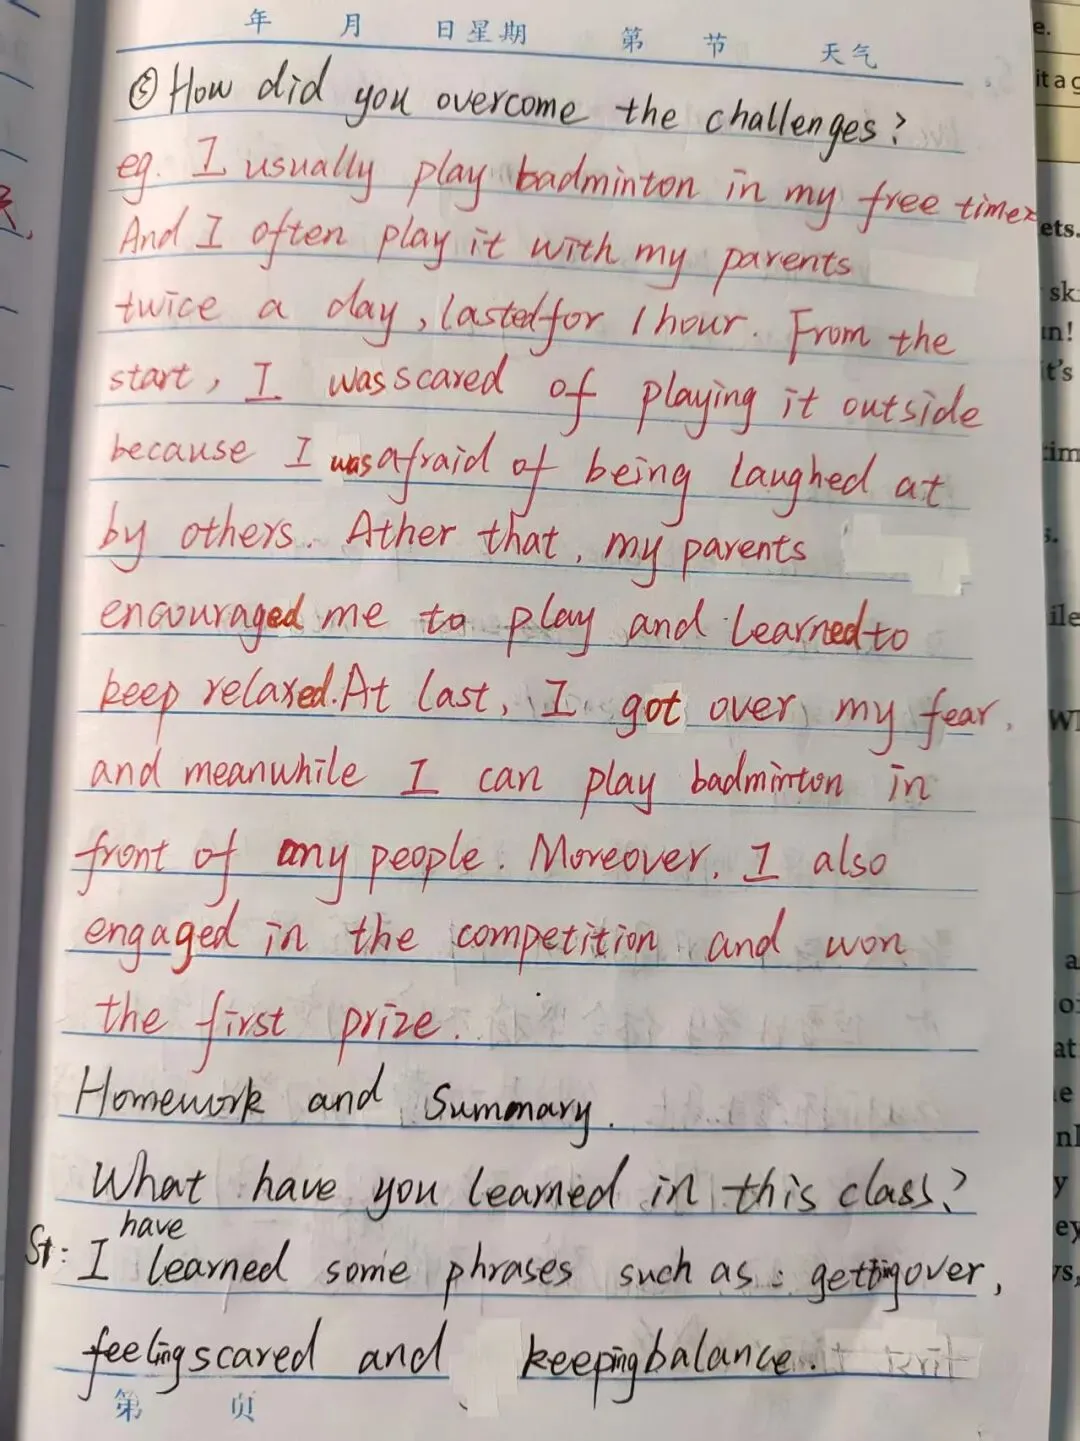 年 月 日 星期 第 节 天气
⑤ How did you overcome the challenges?
eg. I usually play badminton in my free time.
And I often play it with my parents
twice a day, lasted for 1 hour. From the
start, I was scared of playing it outside
because I was afraid of being laughed at
by others. Ather that, my parents
encouraged me to play and learned to
keep relaxed. At last, I got over my fear,
and meanwhile I can play badminton in
front of many people. Moreover, I also
engaged in the competition and won
the first prize.
Homework and Summary.
What have you learned in this class?
have
St: I learned some phrases such as: getting over,
feeling scared and keeping balance.
第 页
e.
it a g
ets.
sk
n!
t's
tim
s.
ile
WI
a
o
at
e
nl
y
ey
s,